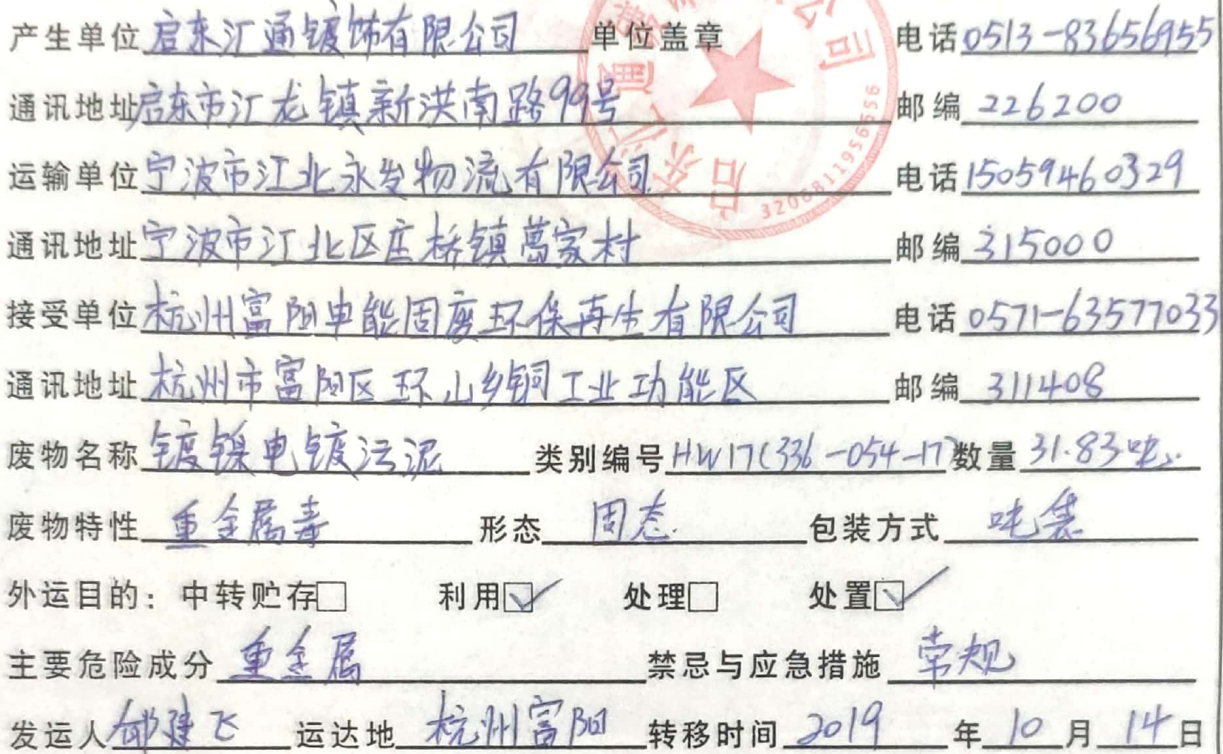 产生单位 启东汇通镀饰有限公司 单位盖章 电话 0513-83656955
通讯地址 启东市汇龙镇新洪南路99号 邮编 226200
运输单位 宁波市江北永发物流有限公司 电话 15059460329
通讯地址 宁波市江北区庄桥镇葛家村 邮编 315000
接受单位 杭州富阳申能固废环保再生有限公司 电话 0571-63577033
通讯地址 杭州市富阳区环山乡铜工业功能区 邮编 311408
废物名称 镀镍电镀污泥 类别编号 HW17(336-054-17) 数量 31.83吨
废物特性 重金属毒 形态 固态 包装方式 吨袋
外运目的：中转贮存□ 利用☑ 处理□ 处置☑
主要危险成分 重金属 禁忌与应急措施 常规
发运人 建飞 运达地 杭州富阳 转移时间 2019 年 10 月 14 日